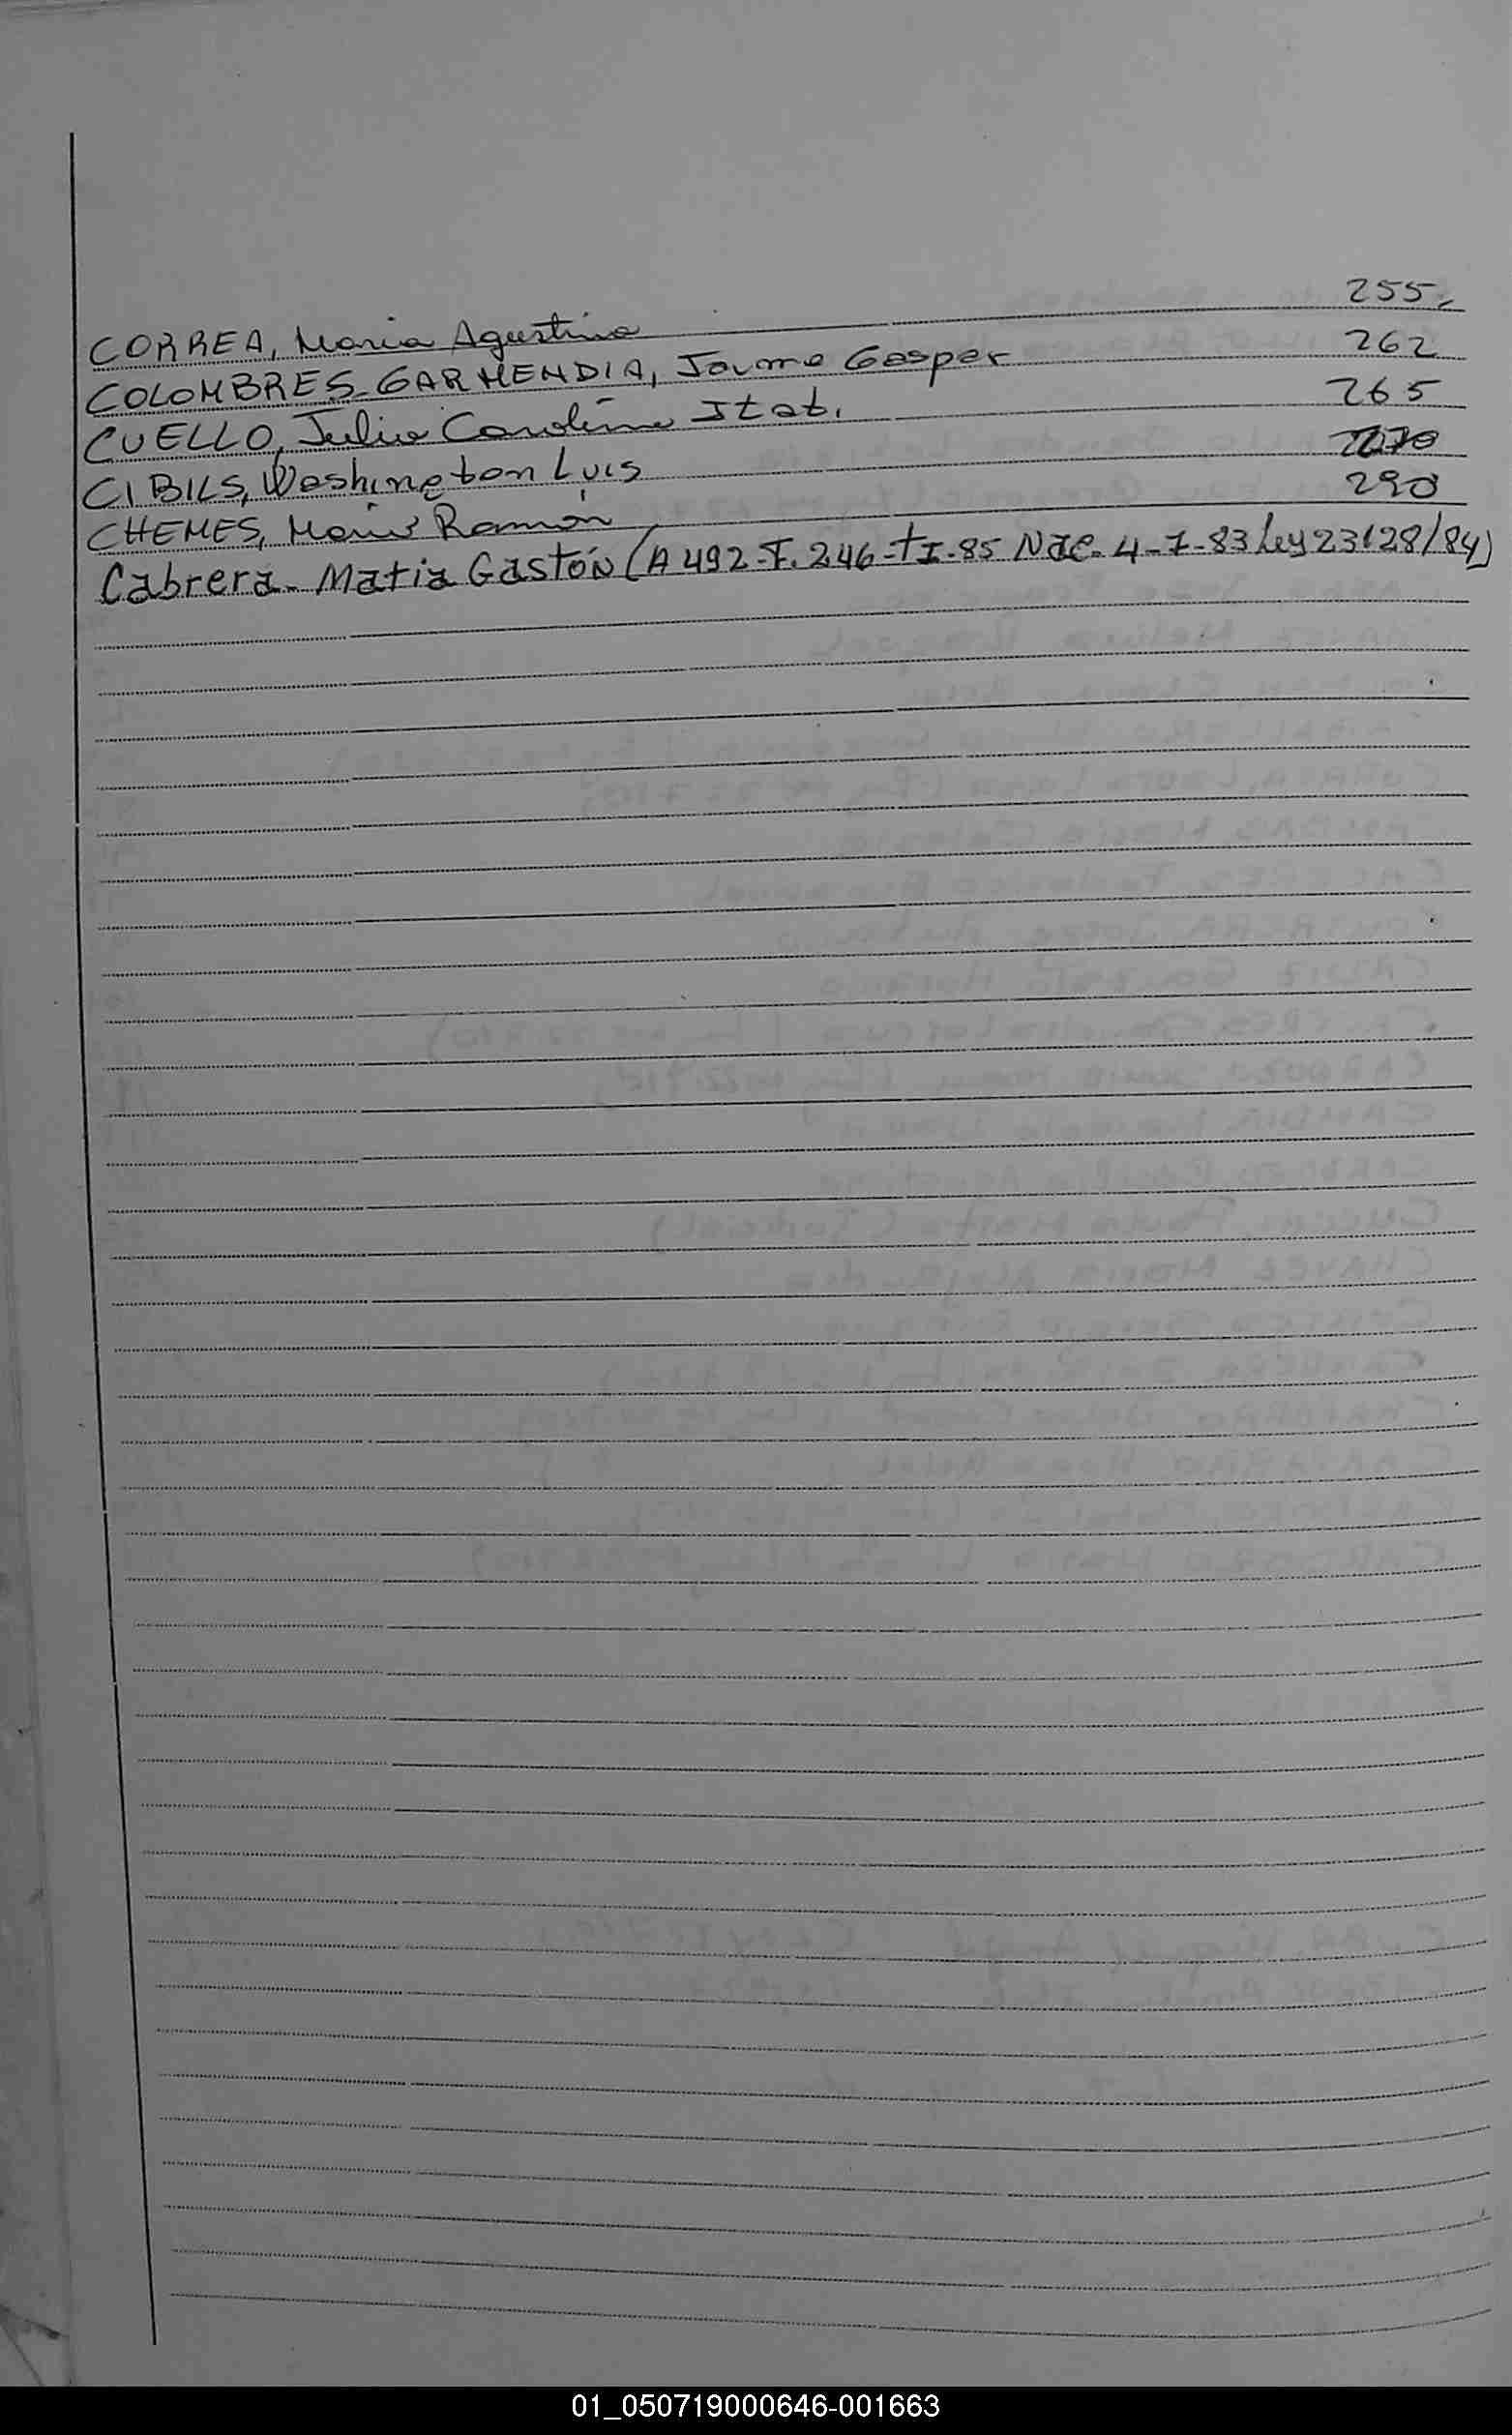 CORREA, Maria Agustina 255.
COLOMBRES-GARMENDIA, Jaime Gaspar 262
CUELLO, Julia Carolina Itat. 265
CIBILS, Washington Luis 270
CHEMES, Mario Ramón 290
Cabrera- Matia Gastón (A 492-F. 246-tI-85 Nac. 4-7-83 Ley 23128/84)
01_050719000646-001663